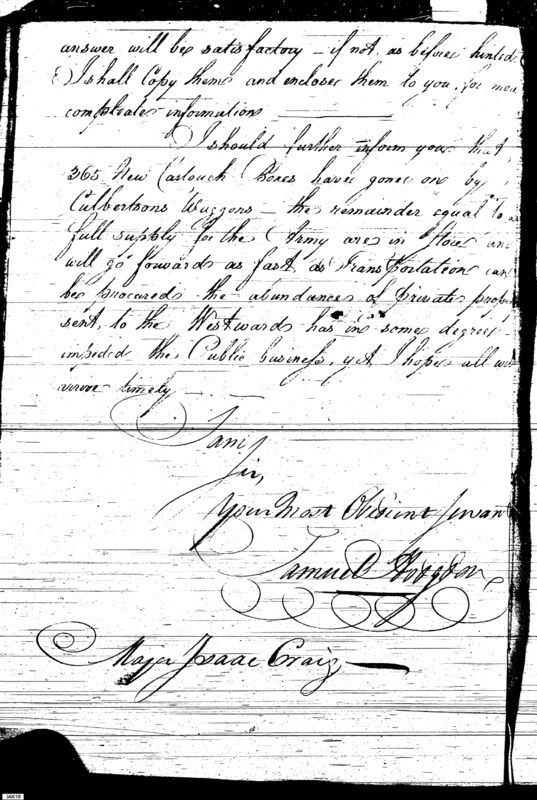 answer will be satisfactory – if not, as before hinted,
I shall Copy them and enclose them to you, for more
compleate information
I should further inform you that,
365 New Cartouch Boxes have gone on by
Culbertsons Waggons – the remainder equal to a
full supply for the Army are in Store and
will go forward as fast as Transportation can
be procured the abundance of private prop
sent to the Westward has in some degree
impeded the Public business, yet I hope all will
arrive timely
I am
Sir,
Your Most Obedient Servant
Samuel Hodgdon
Major Isaac Craig
IAK19